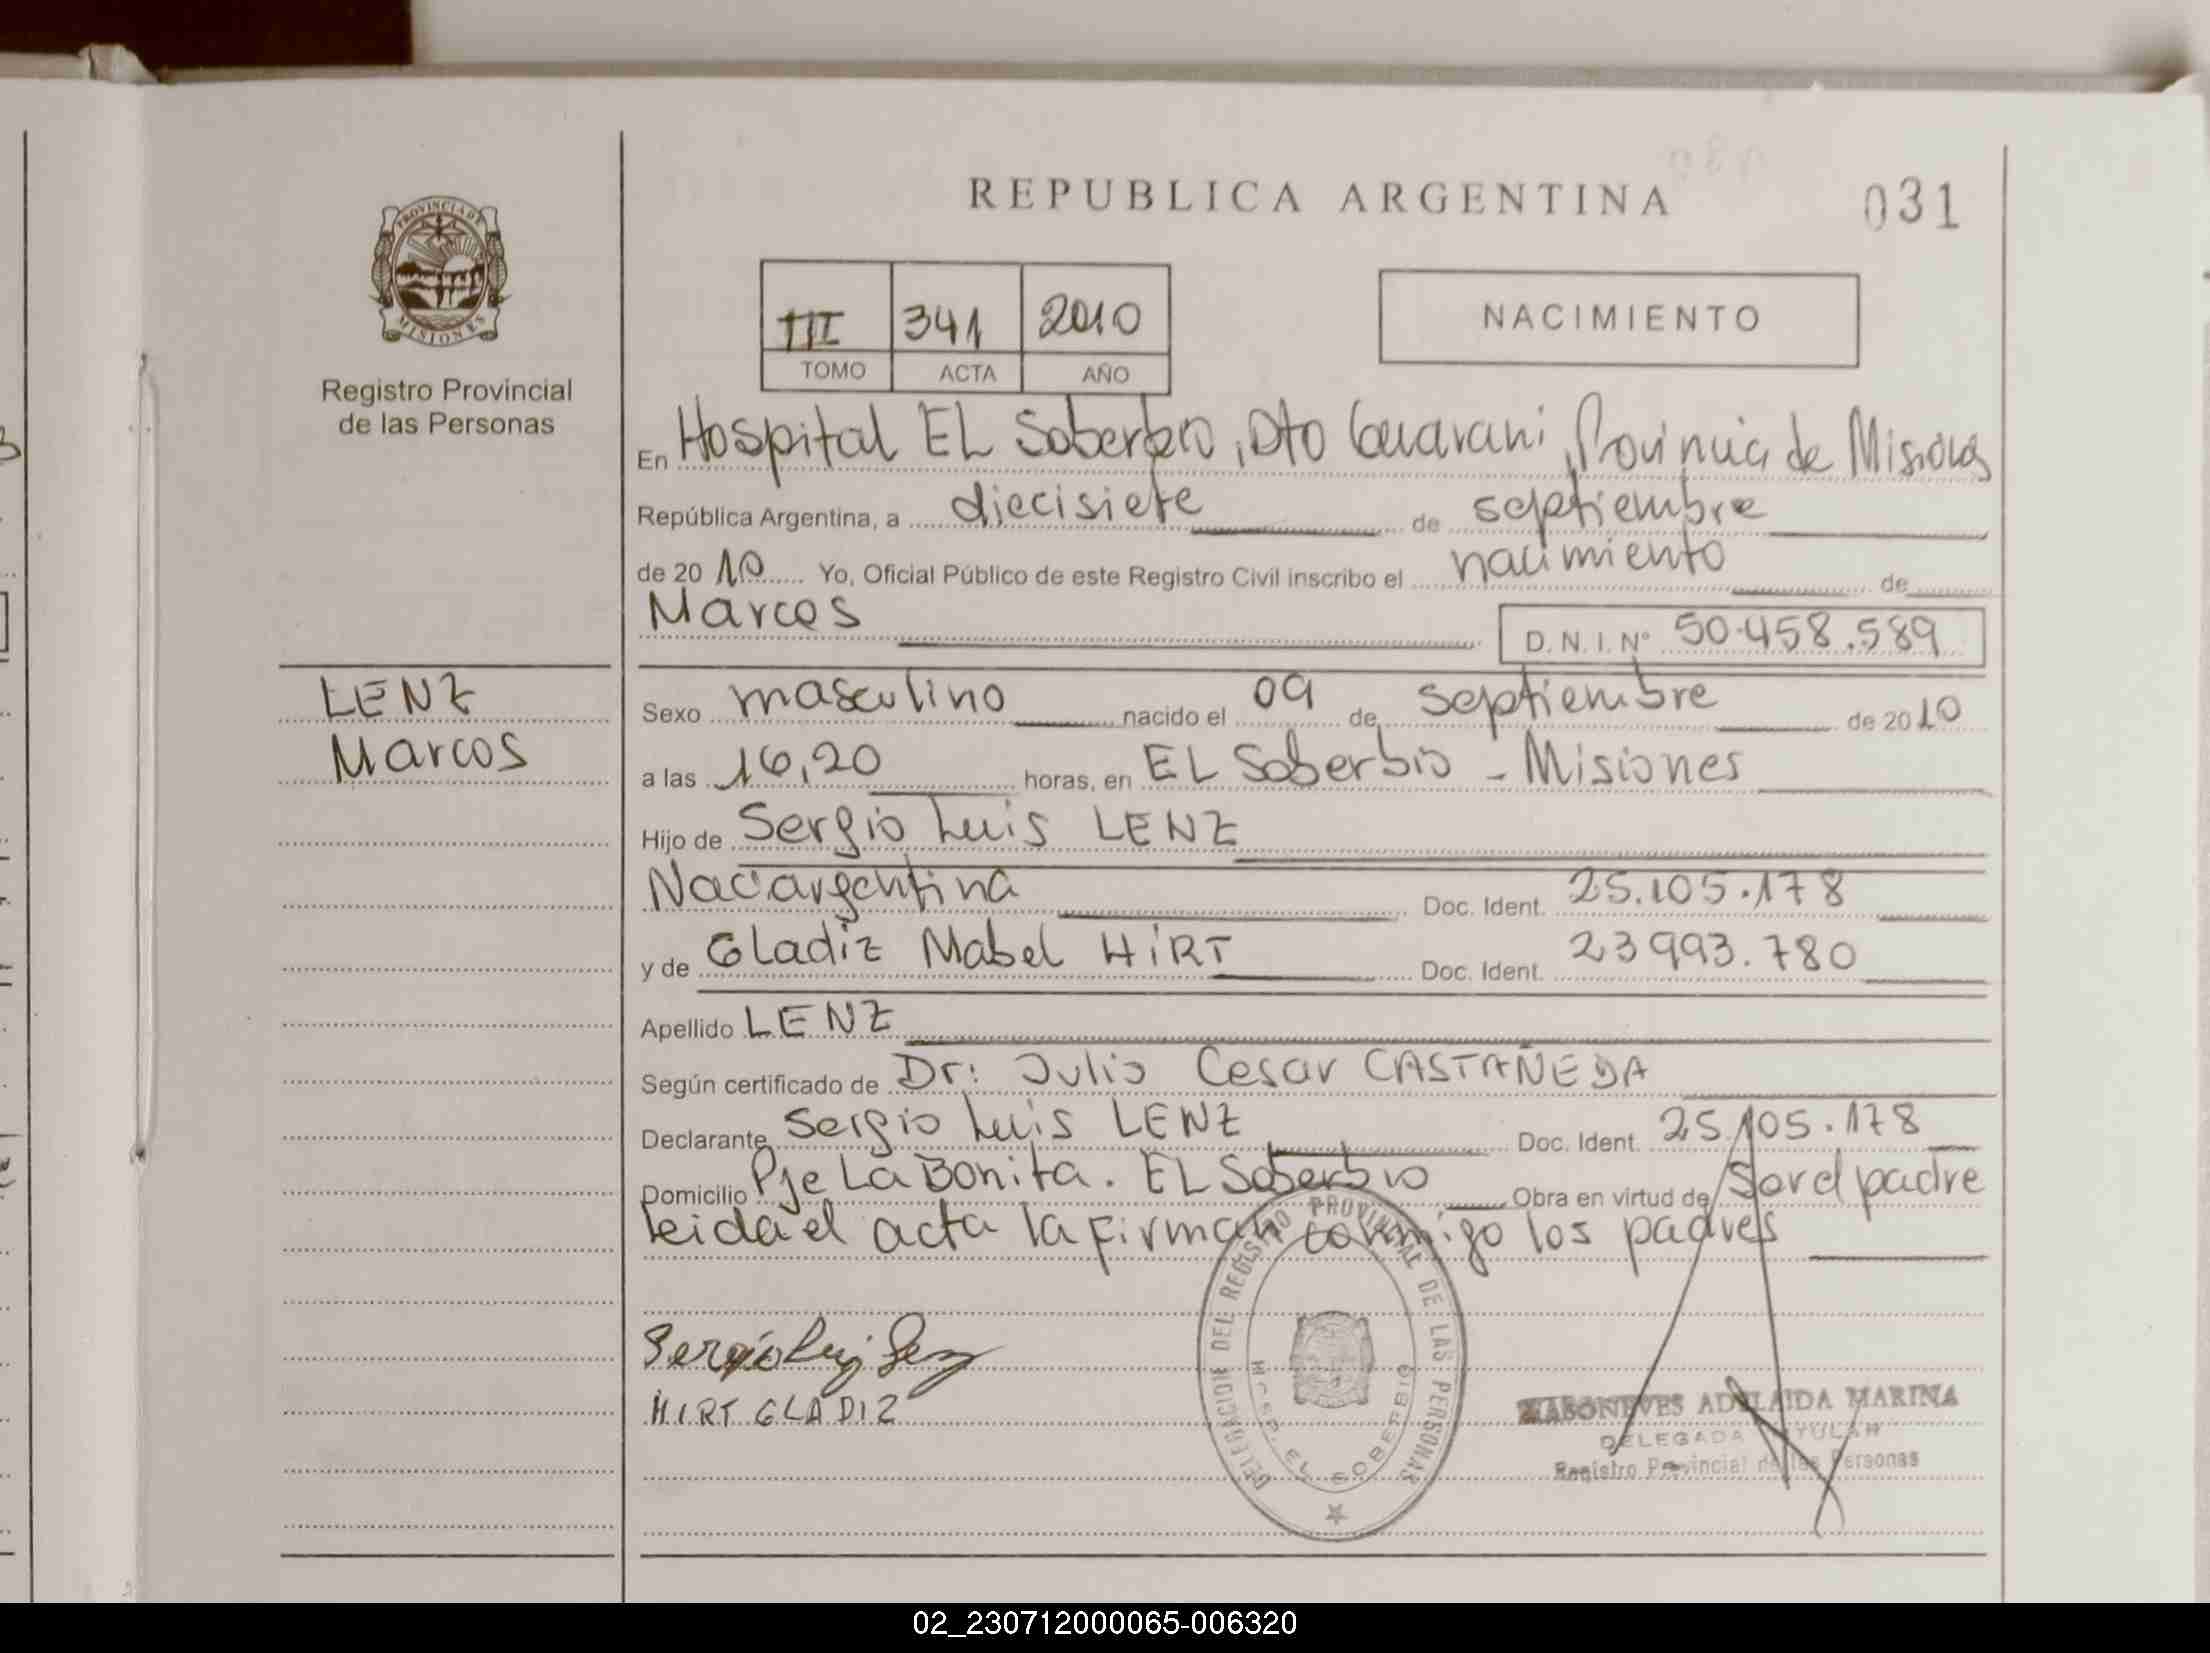 REPUBLICA ARGENTINA
031
PROVINCIA DE MISIONES
Registro Provincial
de las Personas
III 341 2010
TOMO ACTA AÑO
NACIMIENTO
En Hospital EL Soberbio, Dto Guarani, Provincia de Misiones
República Argentina, a diecisiete de septiembre
de 2010 Yo, Oficial Público de este Registro Civil inscribo el nacimiento de
Marcos D.N.I. Nº 50.458.589
LENZ
Marcos
Sexo masculino nacido el 09 de septiembre de 2010
a las 16,20 horas, en EL Soberbio - Misiones
Hijo de Sergio Luis LENZ
Nac argentina Doc. Ident. 25.105.178
y de GLadiz Mabel HiRT Doc. Ident. 23993.780
Apellido LENZ
Según certificado de Dr: Julio Cesar CASTAÑEDA
Declarante Sergio Luis LENZ Doc. Ident. 25.105.178
Domicilio Pje La Bonita. EL Soberbio Obra en virtud de Ser el padre
Leida el acta la firman conmigo los padres
Sergio Luis Lenz
HIRT GLADIZ
DELEGACION DEL REGISTRO PROVINCIAL DE LAS PERSONAS
HOSP. EL SOBERBIO
ADELAIDA MARINA
DELEGADA TITULAR
Registro Provincial de las Personas
02_230712000065-006320